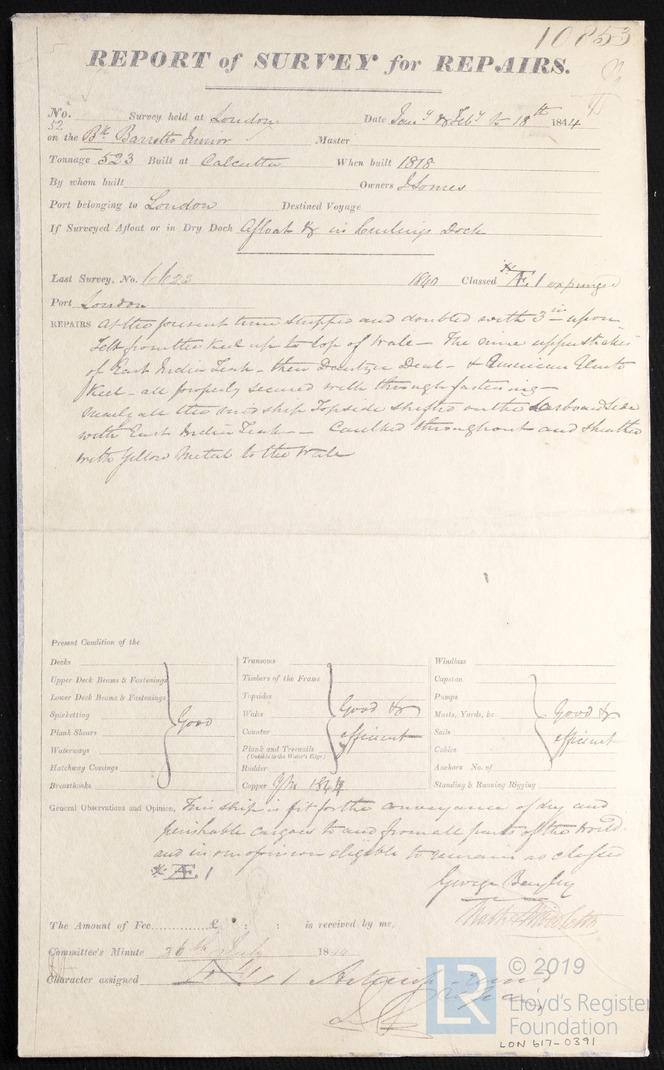 10853
REPORT of SURVEY for REPAIRS.
No. 52 Survey held at London Date Jany & Feby to 18th 1844
on the Bk Barretto Junior Master
Tonnage 523 Built at Calcutta When built 1818
By whom built Owners J Somes
Port belonging to London Destined Voyage
If Surveyed Afloat or in Dry Dock Afloat & in Dock
Last Survey, No. 1840 Classed Æ 1 expunged
Port London
REPAIRS At the present time stripped and doubled with 3 in upon
Felt from the Keel up to top of Wale — The upper strakes
of East India Teak — then Dantzic Deal — & American to
Keel — all properly secured with through fastening —
Nearly all the Mid ship Topside shifted on the Larboard Side
with East India Teak — Caulked throughout and sheathed
with Yellow Metal to the Wale
Present Condition of the
Decks
Upper Deck Beams & Fastenings
Lower Deck Beams & Fastenings
Spirketting
Plank Shears
Waterways
Hatchway Coamings
Breasthooks
Good
Transoms
Timbers of the Frame
Topsides
Wales
Counter
Plank and Treenails
(Outside to the Water's Edge.)
Rudder
Copper YM 1844
Good &
efficient
Windlass
Capstan
Pumps
Masts, Yards, &c.
Sails
Cables
Anchors No. of
Standing & Running Rigging
Good &
efficient
General Observations and Opinion, This ship is fit for the conveyance of dry and
perishable cargoes to and from all parts of the World
and in our opinion eligible to remain as classed
Æ 1
George Bayley
The Amount of Fee £ : : is received by me,
Committee's Minute 26th 18
Character assigned
LR
© 2019
Lloyd's Register
Foundation
LON 617-0391